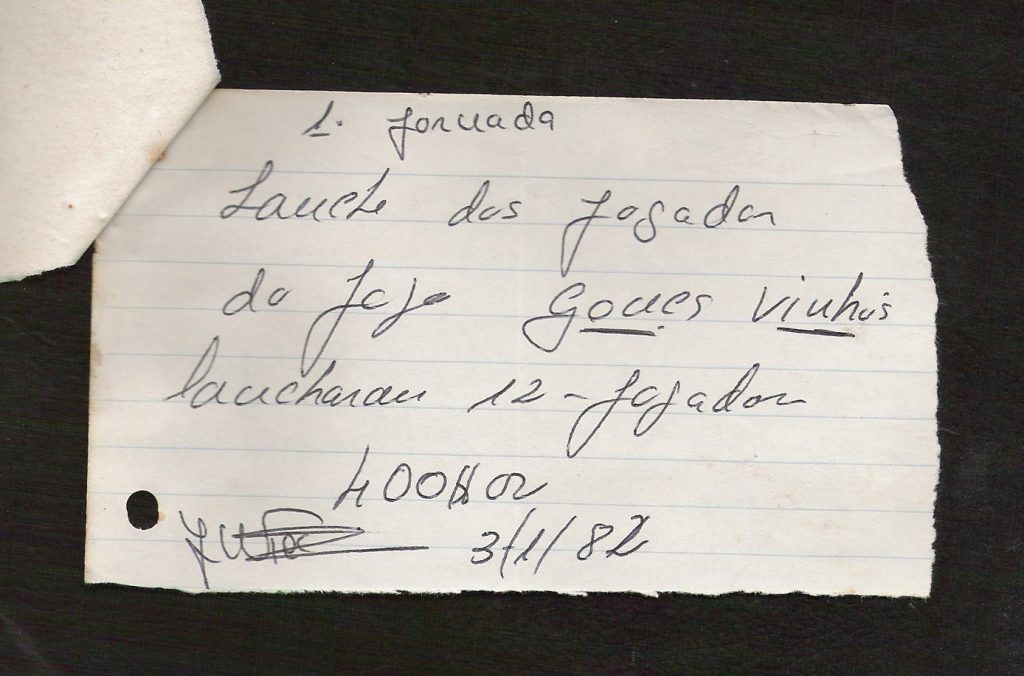 1. Jornada
Lanche dos Jogador
do Jogo Goues Vinhós
lancharam 12 - Jogador
400$00
3/1/82